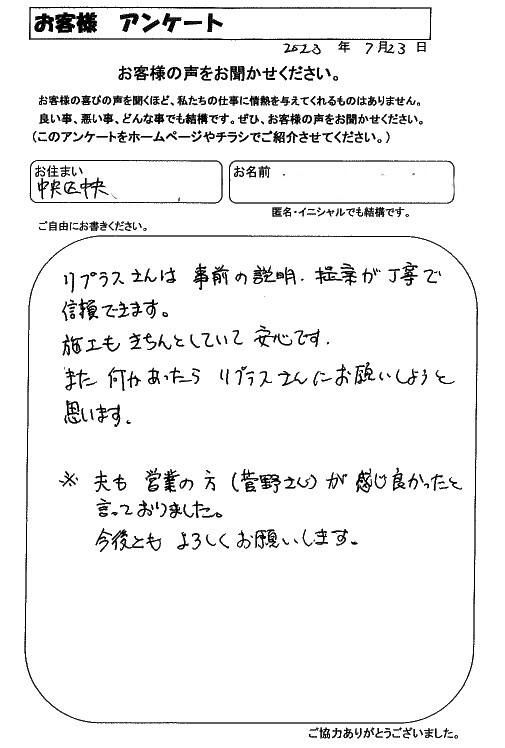 お客様 アンケート
2023 年 7月23日
お客様の声をお聞かせください。
お客様の喜びの声を聞くほど、私たちの仕事に情熱を与えてくれるものはありません。
良い事、悪い事、どんな事でも結構です。ぜひ、お客様の声をお聞かせください。
（このアンケートをホームページやチラシでご紹介させてください。）
お住まい
中央区中央
お名前
匿名・イニシャルでも結構です。
ご自由にお書きください。
リプラスさんは 事前の説明．提案が丁寧で
信頼できます。
施工も きちんとしていて 安心です．
また 何かあったら リプラスさんにお願いしようと
思います。
※ 夫も 営業の方（菅野さん）が 感じ良かったと
言っておりました。
今後とも よろしくお願いします。
ご協力ありがとうございました。